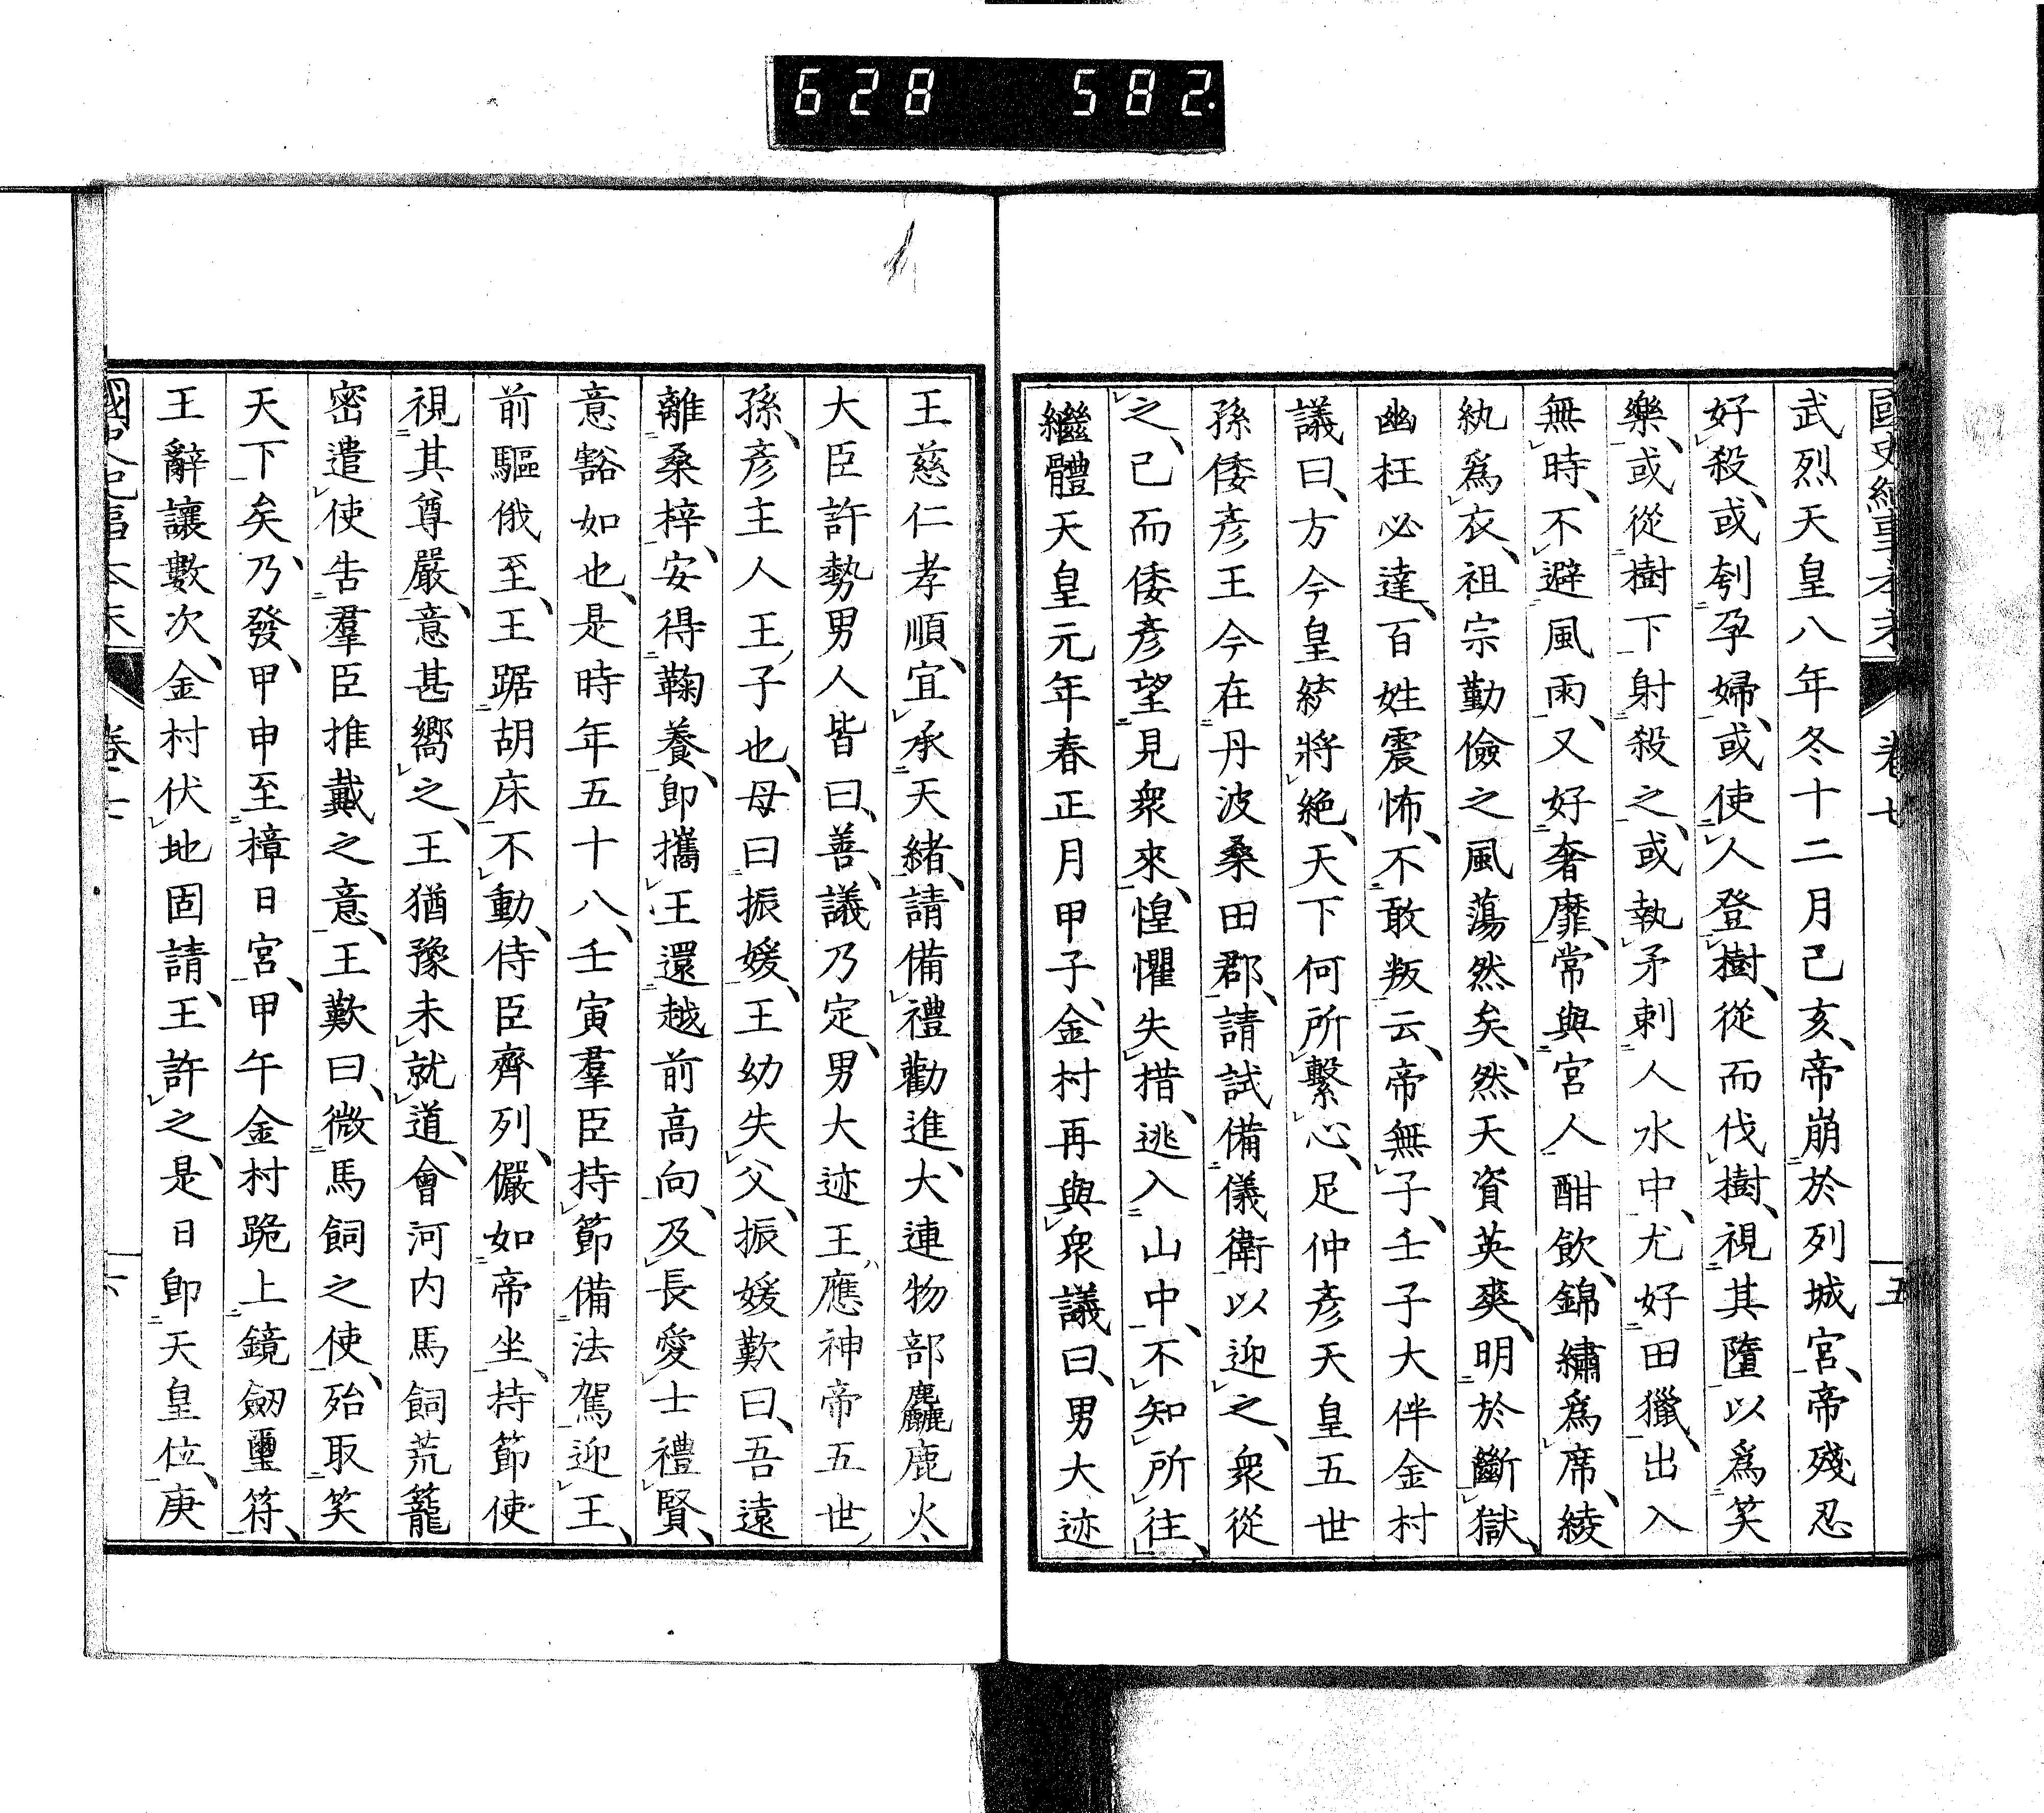 628 582.
國史紀事本末 卷七 五
武烈天皇八年冬十二月己亥、帝崩於列城宮、帝殘忍
好殺、或刳孕婦、或使人登樹、從而伐樹、視其墮以爲笑
樂、或從樹下射殺之、或執矛刺人水中、尤好田獵、出入
無時、不避風雨、又好奢靡、常與宮人酣飲、錦繡爲席、綾
紈爲衣、祖宗勤儉之風蕩然矣、然天資英爽、明於斷獄、
幽枉必達、百姓震怖、不敢叛云、帝無子、壬子大伴金村
議曰、方今皇統將絶、天下何所繫心、足仲彥天皇五世
孫倭彥王今在丹波桑田郡、請試備儀衛以迎之、衆從
之、已而倭彥望見衆來、惶懼失措、逃入山中、不知所往、
繼體天皇元年春正月甲子、金村再與衆議曰、男大迹
王慈仁孝順、宜承天緒、請備禮勸進、大連物部麤鹿火
大臣許勢男人皆曰、善、議乃定、男大迹王、應神帝五世
孫、彥主人王子也、母曰振媛、王幼失父、振媛歎曰、吾遠
離桑梓、安得鞠養、卽攜王還越前高向、及長愛士禮賢、
意豁如也、是時年五十八、壬寅羣臣持節備法駕迎王、
前驅俄至、王踞胡床不動、侍臣齊列、儼如帝坐、持節使
視其尊嚴、意甚嚮之、王猶豫未就道、會河内馬飼荒籠
密遣使吿羣臣推戴之意、王歎曰、微馬飼之使、殆取笑
天下矣、乃發、甲申至樟日宮、甲午金村跪上鏡劒璽符、
王辭讓數次、金村伏地固請、王許之、是日卽天皇位、庚
國史紀事本末 卷七 六